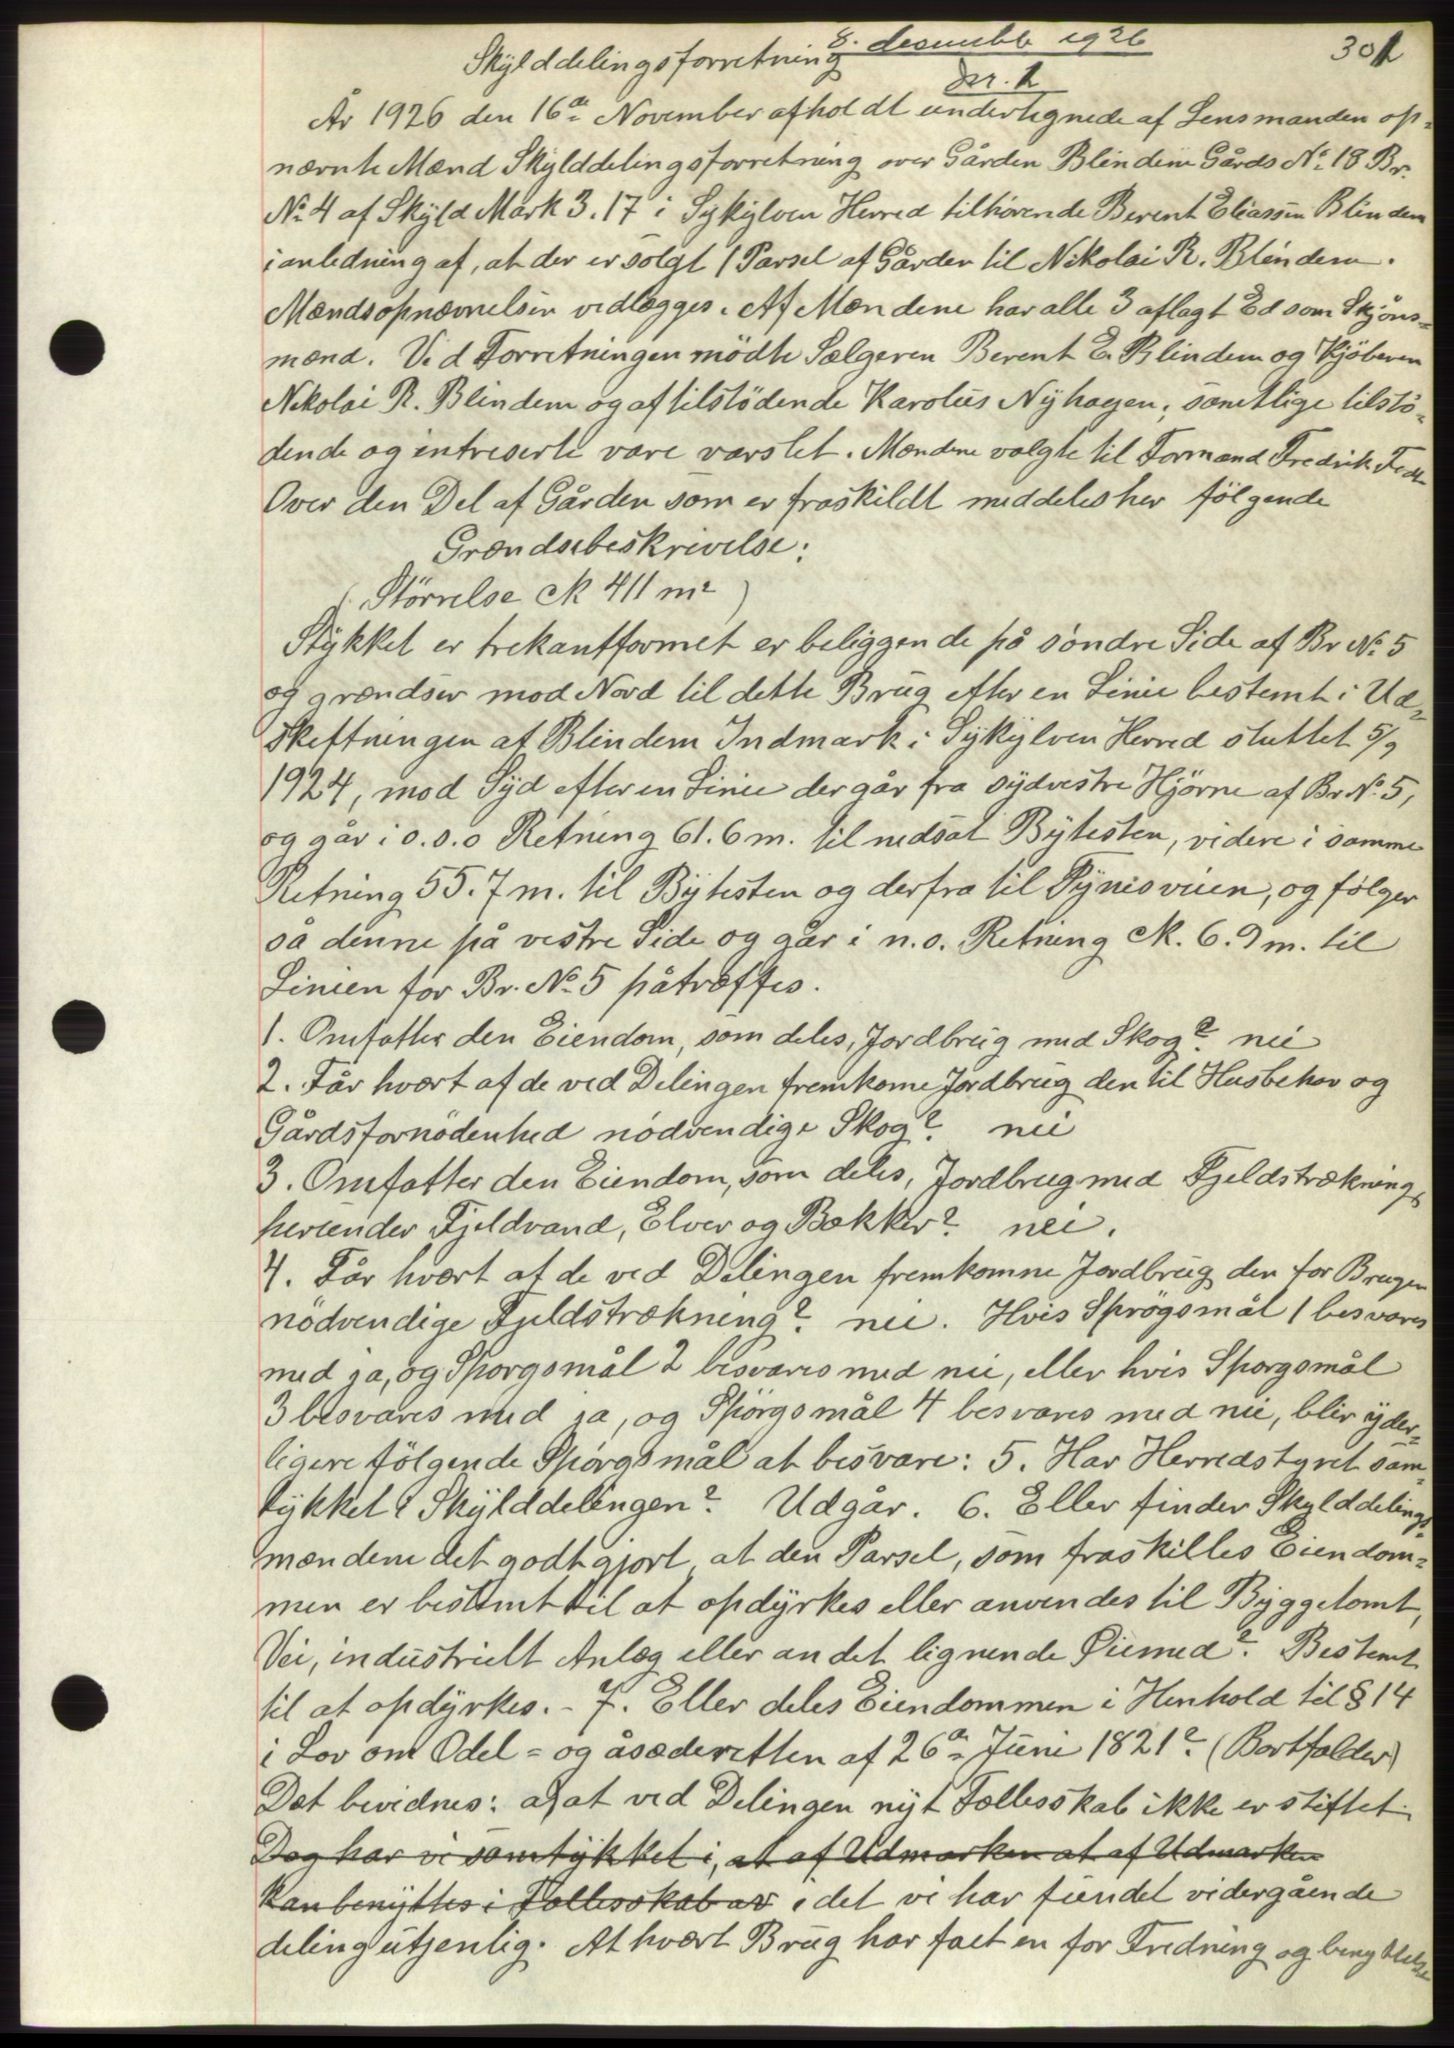 8. desembb 1926
301
Skylddelingsforretning
Nr. 1
År 1926 den 16de November afholdt undertegnede af Lensmanden op-
nævnte Mænd Skylddelingsforretning over Gården Blindem Gårds No 18 Br.
No 4 af Skyld Mark 3.17 i Sykylven Herred tilhörende Berent Eliassen Blindem
i anledning af, at der er solgt 1 Parsel af Gården til Nikolai R. Blindem.
Mændsopnævnelsen vedlægges. Af Mændene har alle 3 aflagt Ed som Skjöns-
mænd. Ved Forretningen mödte Sælgeren Berent E. Blindem og Kjöberen
Nikolai R. Blindem og af tilstödende Karolus Nyhagen; samtlige tilstö-
dende og intreserte vare varslet. Mændene valgte til Formand Fredrik
Over den Del af Gården som er fraskildt meddeles her fölgende
Grændsebeskrivelse:
(Störrelse ck 411 m²)
Stykket er trekantformet er beliggende på söndre Side af Br No 5
og grændser mod Nord til dette Brug efter en Linie bestemt i Ud-
skiftningen af Blindem Indmark i Sykylven Herred sluttet 5/9
1924, mod Syd efter en Linie der går fra sydvestre Hjörne af Br No 5,
og går i o.s.o Retning 61.6 m. til nedsat Bytesten, videre i samme
Retning 55.7 m. til Bytesten og derfra til Tynesveien, og fölger
så denne på vestre Side og går i n.o. Retning ck. 6.9 m. til
Linien for Br. No 5 påtræffes.
1. Omfatter den Eiendom, som deles, Jordbrug med Skog? nei
2. Får hvært af de ved Delingen fremkomne Jordbrug den til Husbehov og
Gårdsfornödenhed nödvendige Skog? nei
3. Omfatter den Eiendom, som deles, Jordbrug med Fjeldstrækning,
herunder Fjeldvand, Elver og Bækker? nei.
4. Får hvært af de ved Delingen fremkomne Jordbrug den for Brugen
nödvendige Fjeldstrækning? nei. Hvis Sprögsmål 1 besvares
med ja, og Sporgsmål 2 besvares med nei, eller hvis Sporgsmål
3 besvares med ja, og Spörgsmål 4 besvares med nei, blir yder-
ligere fölgende Spörgsmål at besvare: 5. Har Herredstyret sam-
tykket i Skylddelingen? Udgår. 6. Eller finder Skylddelings-
mændene det godtgjort, at den Parsel, som fraskilles Eiendom-
men er bestemt til at opdyrkes eller anvendes til Byggetomt,
Vei, industrielt Anlæg eller andet lignende Öiemed? Bestemt
til at opdyrkes. - 7. Eller deles Eiendommen i Henhold til § 14
i Lov om Odel- og åsæderetten af 26de Juni 1821? (Bortfalder)
Det bevidnes: a) at ved Delingen nyt Fællesskab ikke er stiftet.
Dog har vi samtykket i, at af Udmarken at af Udmarken
kan benyttes i Fællesskab av idet vi har fundet vidergående
deling utjenlig. At hvært Brug har faet en for Fredning og benyttelse